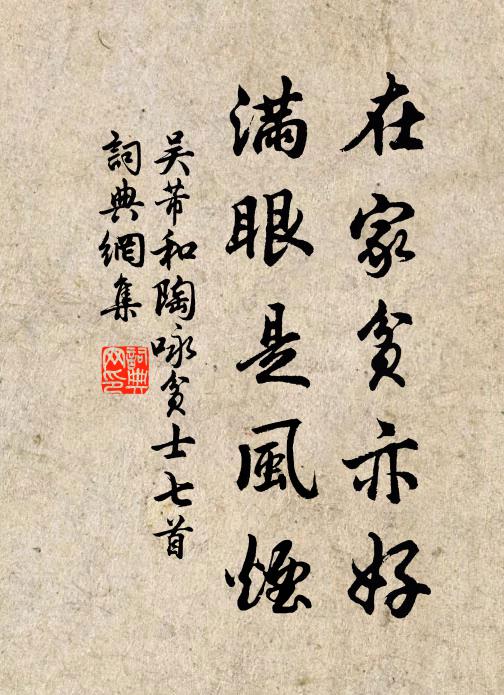 在家貧亦好
滿眼是風煙
吳芾和陶咏貧士七首
詞典網集
詞典網印